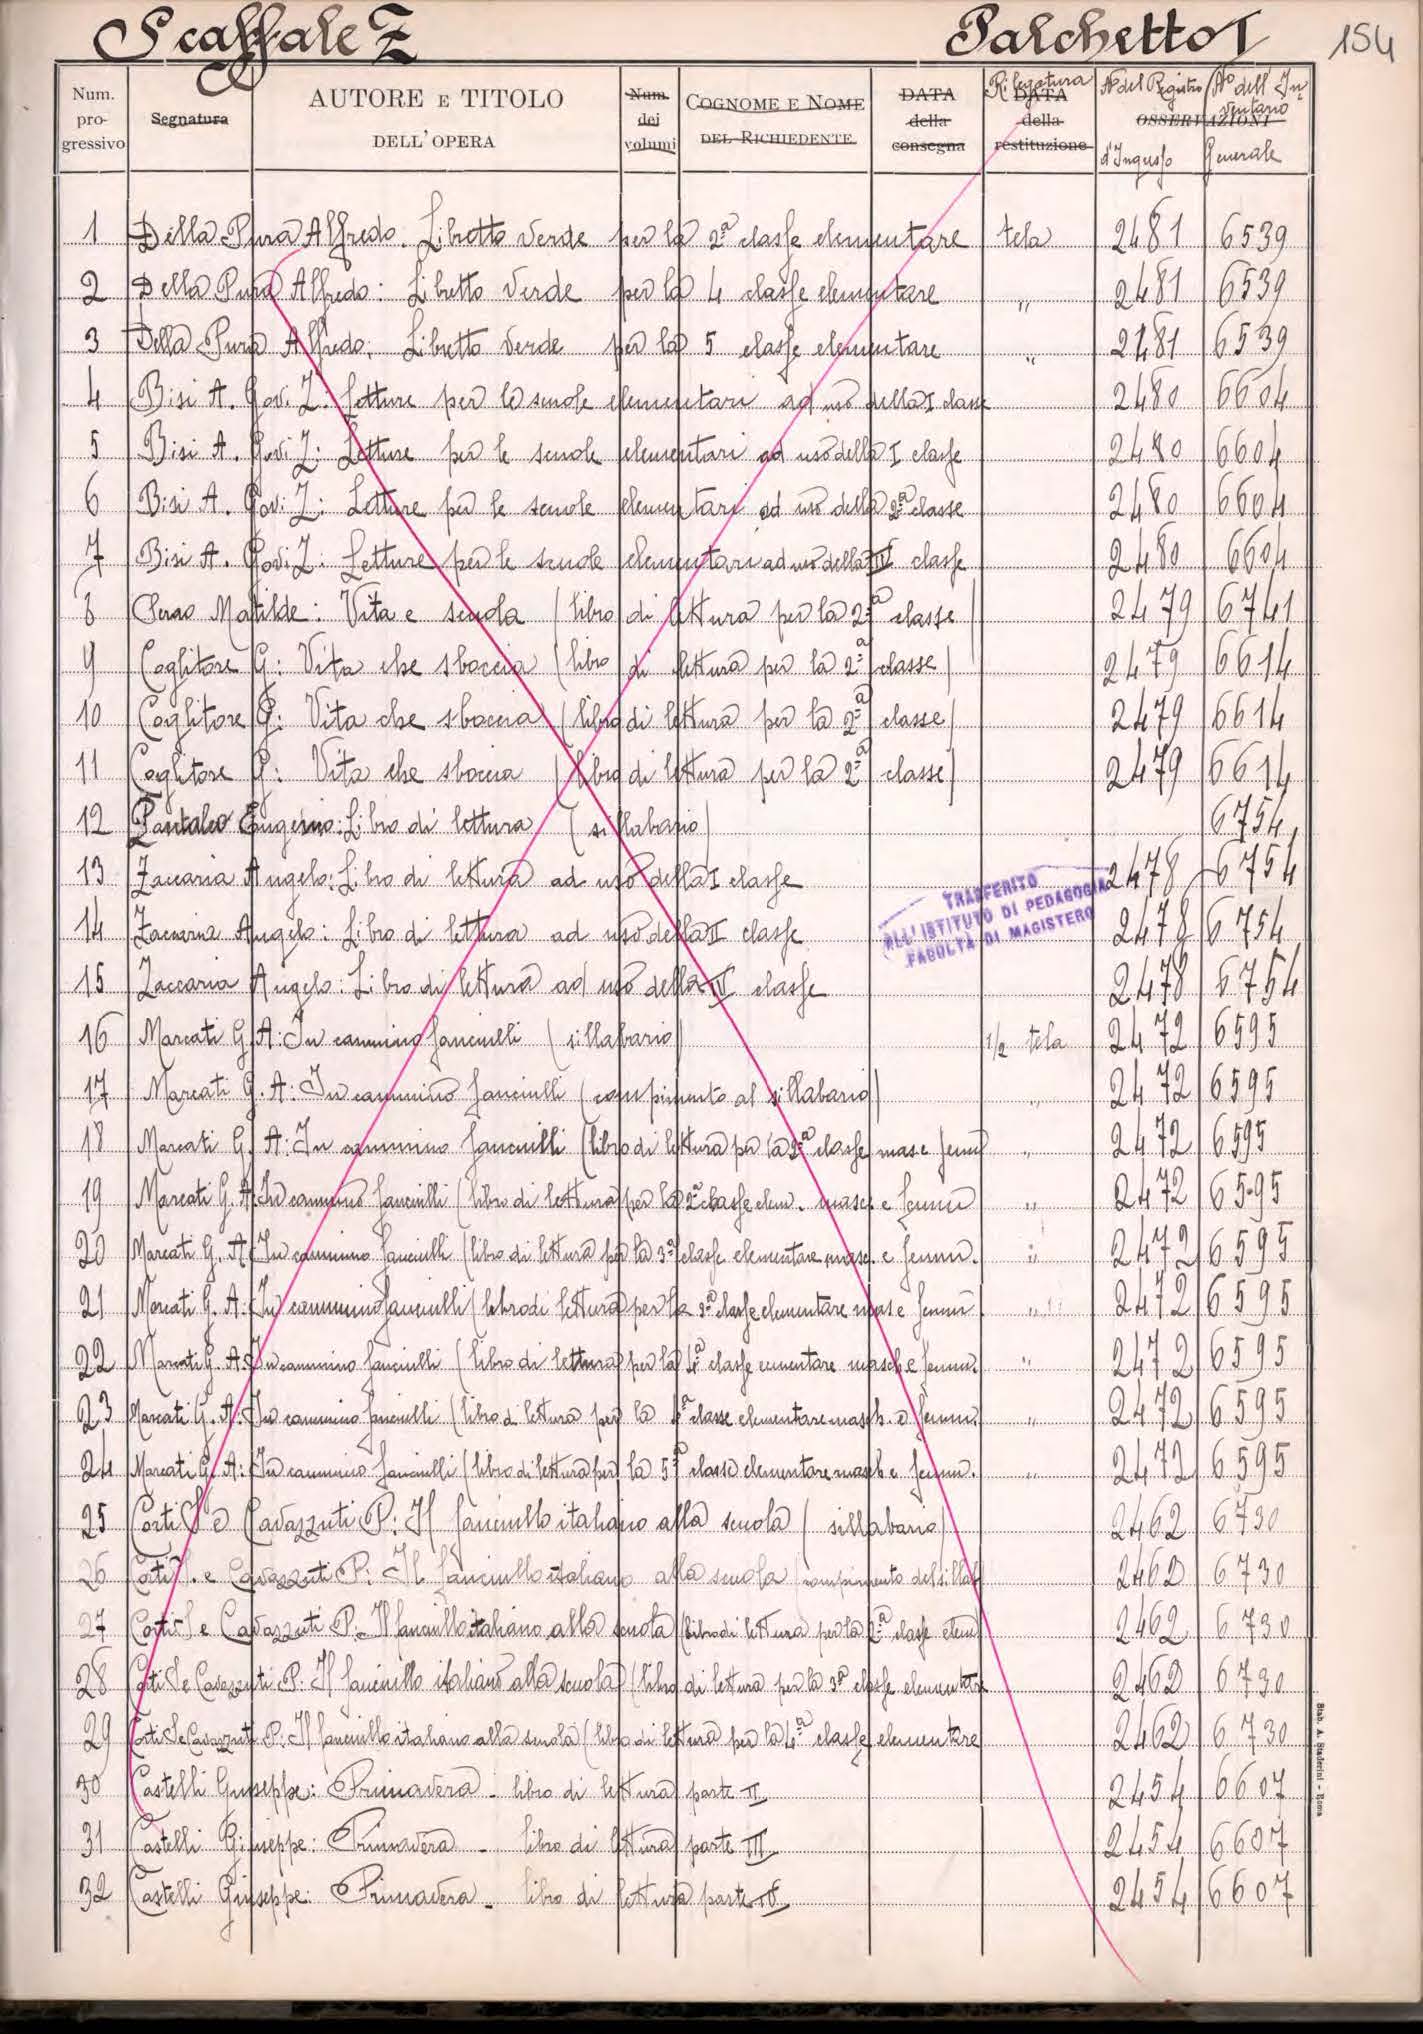 Scaffale Z Palchetto I 154
Num. progressivo Segnatura AUTORE E TITOLO DELL'OPERA Num. dei volumi COGNOME E NOME DEL RICHIEDENTE DATA della consegna Rilegatura DATA della restituzione N° del Registro d'Ingresso OSSERVAZIONI N° dell'Inventario Generale
1 Della Pura Alfredo. Libretto Verde per la 2ª classe elementare tela 2481 6539
2 Della Pura Alfredo: Libretto Verde per la 4 classe elementare " 2481 6539
3 Della Pura Alfredo: Libretto Verde per la 5 classe elementare " 2481 6539
4 Bisi A. Govi Z: Letture per le scuole elementari ad uso della I classe 2480 6604
5 Bisi A. Govi Z: Letture per le scuole elementari ad uso della I classe 2480 6604
6 Bisi A. Govi Z: Letture per le scuole elementari ad uso della 2ª classe 2480 6604
7 Bisi A. Govi Z: Letture per le scuole elementari ad uso della classe 2480 6604
8 Serao Matilde: Vita e scuola (libro di lettura per la 2ª classe) 2479 6741
9 Coglitore G: Vita che sboccia (libro di lettura per la 2ª classe) 2479 6614
10 Coglitore G: Vita che sboccia (libro di lettura per la 2ª classe) 2479 6614
11 Coglitore G: Vita che sboccia (libro di lettura per la 2ª classe) 2479 6614
12 Pantaleo Eugenio: Libro di lettura (sillabario) 6754
13 Zaccaria Angelo: Libro di lettura ad uso della I classe 2478 6754
TRASFERITO
ALL'ISTITUTO DI PEDAGOGIA
FACOLTÀ DI MAGISTERO
14 Zaccaria Angelo: Libro di lettura ad uso della II classe 2478 6754
15 Zaccaria Angelo: Libro di lettura ad uso della classe 2478 6754
16 Marcati G. A: In cammino fanciulli (sillabario) 1/2 tela 2472 6595
17 Marcati G. A: In cammino fanciulli (compimento al sillabario) " 2472 6595
18 Marcati G. A: In cammino fanciulli (libro di lettura per la 2ª classe mas e femm " 2472 6595
19 Marcati G. A: In cammino fanciulli (libro di lettura per la 2ª classe elem. masc. e femm " 2472 6595
20 Marcati G. A: In cammino fanciulli (libro di lettura per la 3ª classe elementare masc. e femm. " 2472 6595
21 Marcati G. A: In cammino fanciulli (libro di lettura per la 3ª classe elementare mas e femm " 2472 6595
22 Marcati G. A: In cammino fanciulli (libro di lettura per la 4ª classe elementare masch e femm. " 2472 6595
23 Marcati G. A: In cammino fanciulli (libro di lettura per la classe elementare masch. e femm. " 2472 6595
24 Marcati G. A: In cammino fanciulli (libro di lettura per la 5ª classe elementare masch e femm. " 2472 6595
25 Corti S e Cavazzuti P: Il fanciullo italiano alla scuola (sillabario) 2462 6730
26 Corti S. e Cavazzuti P: Il fanciullo italiano alla scuola (compimento del sillab) 2462 6730
27 Corti S e Cavazzuti P. Il fanciullo italiano alla scuola (libro di lettura per la 2ª classe elem) 2462 6730
28 Corti S e Cavazzuti P. Il fanciullo italiano alla scuola (libro di lettura per la 3ª classe elementare 2462 6730
29 Corti S e Cavazzuti P: Il fanciullo italiano alla scuola (libro di lettura per la 4ª classe elementare 2462 6730
30 Castelli Giuseppe: Primavera - libro di lettura parte II 2454 6607
31 Castelli Giuseppe: Primavera - libro di lettura parte III 2454 6607
32 Castelli Giuseppe: Primavera - libro di lettura parte IV 2454 6607
Stab. A. Staderini - Roma